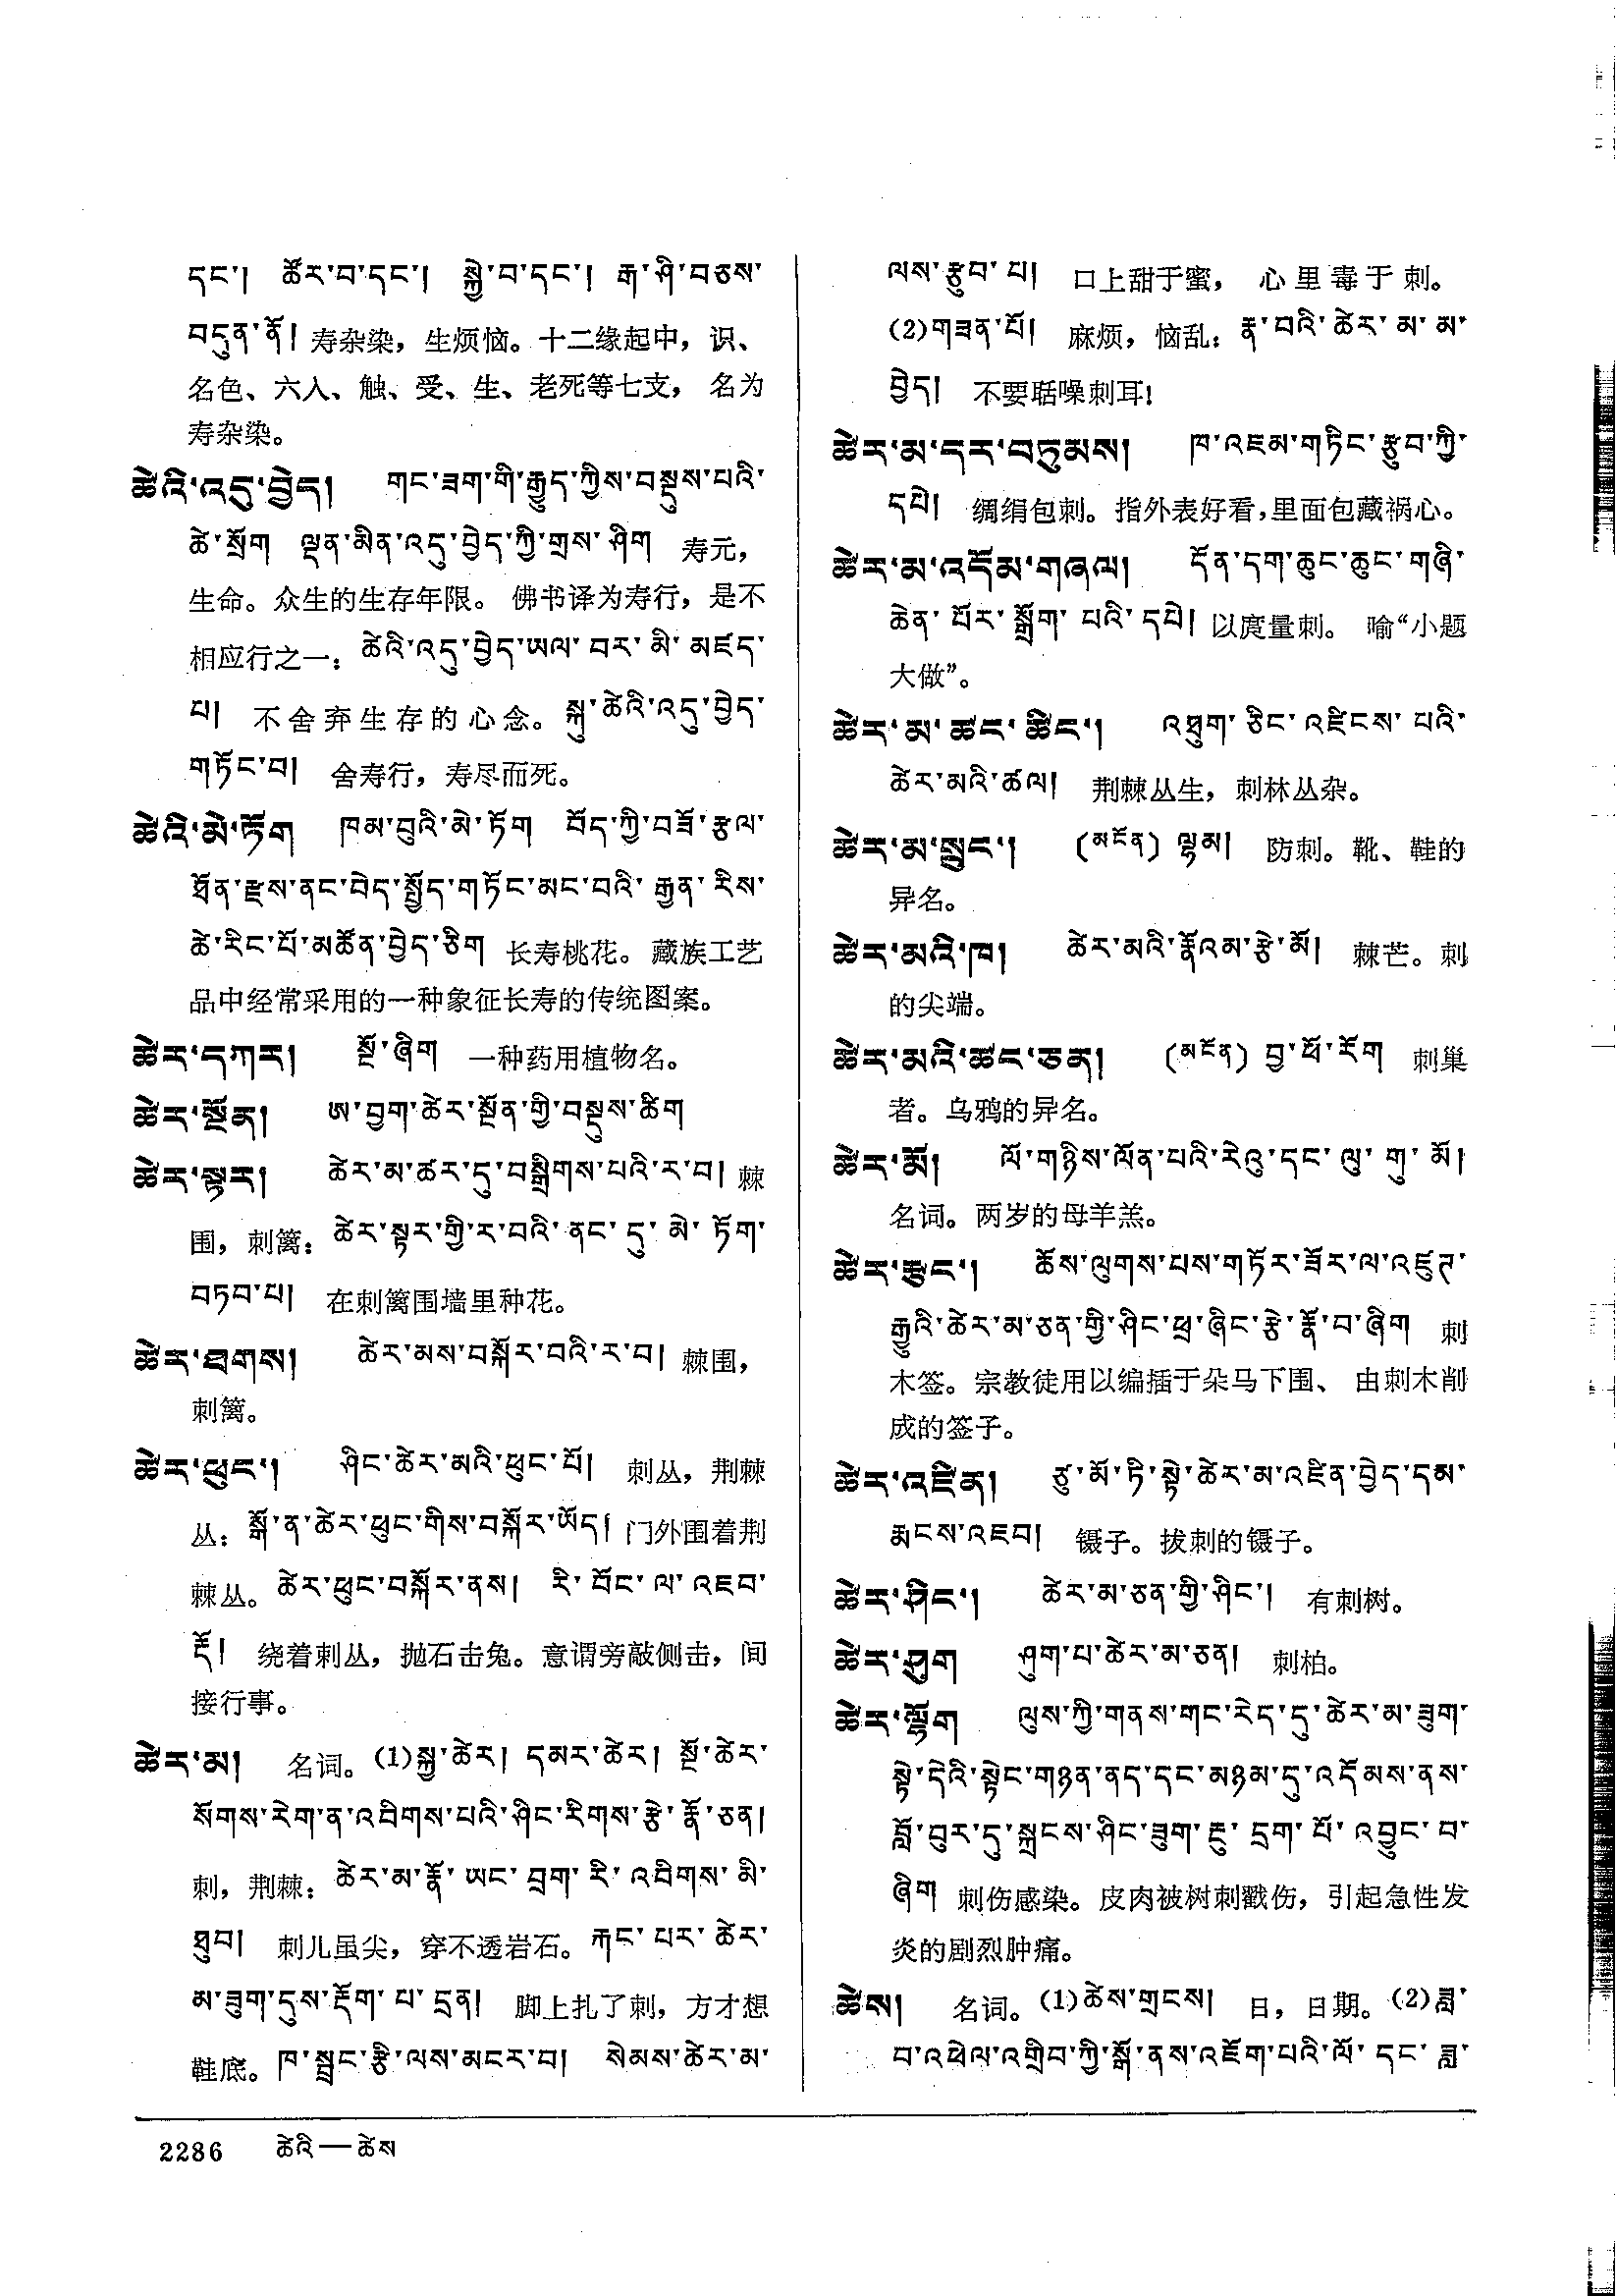 དང་། ཚོར་བ་དང་། སྐྱེ་བ་དང་། རྒ་ཤི་བཅས་
བདུན་ནོ། 寿杂染，生烦恼。十二缘起中，识、
名色、六入、触、受、生、老死等七支， 名为
寿杂染。
ཚེའི་འདུ་བྱེད། གང་ཟག་གི་རྒྱུད་ཀྱིས་བསྡུས་པའི་
ཚེ་སྲོག ལྡན་མིན་འདུ་བྱེད་ཀྱི་གྲས་ཤིག 寿元，
生命。众生的生存年限。 佛书译为寿行，是不
相应行之一：ཚེའི་འདུ་བྱེད་ཨལ་བར་མི་མཛད་
པ། 不舍弃生存的心念。སྐུ་ཚེའི་འདུ་བྱེད་
གཏོང་བ། 舍寿行，寿尽而死。
ཚེའི་མེ་ཏོག ཁམ་བུའི་མེ་ཏོག བོད་ཀྱི་བཟོ་རྩལ་
ཐོན་རྫས་ནང་བེད་སྤྱོད་གཏོང་མང་བའི་རྒྱན་རིས་
ཚེ་རིང་པོ་མཚོན་བྱེད་ཅིག 长寿桃花。藏族工艺
品中经常采用的一种象征长寿的传统图案。
ཚེར་དཀར། སྔོ་ཞིག 一种药用植物名。
ཚེར་སྔོན། ཨ་བྱག་ཚེར་སྔོན་གྱི་བསྡུས་ཚིག
ཚེར་སྟར། ཚེར་མ་ཚར་དུ་བསྒྲིགས་པའི་ར་བ། 棘
围，刺篱：ཚེར་སྟར་གྱི་ར་བའི་ནང་དུ་མེ་ཏོག་
བཏབ་པ། 在刺篱围墙里种花。
ཚེར་ཐགས། ཚེར་མས་བསྐོར་བའི་ར་བ། 棘围，
刺篱。
ཚེར་ཕུང་། ཤིང་ཚེར་མའི་ཕུང་པོ། 刺丛，荆棘
丛：སྒོ་ན་ཚེར་ཕུང་གིས་བསྐོར་ཡོད། 门外围着荆
棘丛。ཚེར་ཕུང་བསྐོར་ནས། རི་བོང་ལ་འཇབ་
རྡོ། 绕着刺丛，抛石击兔。意谓旁敲侧击，间
接行事。
ཚེར་མ། 名词。(1)སྐྱ་ཚེར། དམར་ཚེར། སྔོ་ཚེར་
སོགས་རེག་ན་འབིགས་པའི་ཤིང་རིགས་རྩེ་རྣོ་ཅན།
刺，荆棘：ཚེར་མ་རྣོ་ཡང་བྲག་རི་འབིགས་མི་
ཐུབ། 刺儿虽尖，穿不透岩石。རྐང་པར་ཚེར་
མ་ཟུག་དུས་རྡོག་པ་དྲན། 脚上扎了刺，方才想
鞋底。ཁ་སྦྲང་རྩི་ལས་མངར་བ། སེམས་ཚེར་མ་
ལས་རྩུབ་པ། 口上甜于蜜， 心里毒于刺。
(2)གཟན་པོ། 麻烦，恼乱：རྣ་བའི་ཚེར་མ་མ་
བྱེད། 不要聒噪刺耳！
ཚེར་མ་དར་བཏུམས། ཁ་འཇམ་གཏིང་རྩུབ་ཀྱི་
དཔེ། 绸绢包刺。指外表好看，里面包藏祸心。
ཚེར་མ་འདོམ་གཞལ། དོན་དག་ཆུང་ཆུང་གཞི་
ཆེན་པོར་སྒྲོག་པའི་དཔེ། 以庹量刺。 喻“小题
大做”。
ཚེར་མ་ཚང་ཚིང་། འཐུག་ཅིང་འཛིངས་པའི་
ཚེར་མའི་ཚལ། 荆棘丛生，刺林丛杂。
ཚེར་མ་སྲུང་། (མངོན) ལྷམ། 防刺。靴、鞋的
异名。
ཚེར་མའི་ཁ། ཚེར་མའི་རྣོའམ་རྩེ་མོ། 棘芒。刺
的尖端。
ཚེར་མའི་ཚང་ཅན། (མངོན) བྱ་ཕོ་རོག 刺巢
者。乌鸦的异名。
ཚེར་མོ། ལོ་གཉིས་ལོན་པའི་རེའུ་དང་ལུ་གུ་མོ།
名词。两岁的母羊羔。
ཚེར་རྒྱང་། ཆོས་ལུགས་པས་གཏོར་ཟོར་ལ་འཛུད་
རྒྱུའི་ཚེར་མ་ཅན་གྱི་ཤིང་ཕྲ་ཞིང་རྩེ་རྣོ་བ་ཞིག 刺
木签。宗教徒用以编插于朵马下围、 由刺木削
成的签子。
ཚེར་འཛིན། ཙུ་མོ་ཏི་སྟེ་ཚེར་མ་འཛིན་བྱེད་དམ་
རྨངས་འཇབ། 镊子。拔刺的镊子。
ཚེར་ཤིང་། ཚེར་མ་ཅན་གྱི་ཤིང་། 有刺树。
ཚེར་ཤུག ཤུག་པ་ཚེར་མ་ཅན། 刺柏。
ཚེར་ལྷོག ལུས་ཀྱི་གནས་གང་རེད་དུ་ཚེར་མ་ཟུག་
སྟེ་དེའི་སྟེང་གཉན་ནད་དང་མཉམ་དུ་འདོམས་ནས་
གློ་བུར་དུ་སྐྲངས་ཤིང་ཟུག་རྔུ་དྲག་པོ་འབྱུང་བ་
ཞིག 刺伤感染。皮肉被树刺戳伤，引起急性发
炎的剧烈肿痛。
ཚེས། 名词。(1)ཚེས་གྲངས། 日，日期。(2)ཟླ་
བ་འཕེལ་འགྲིབ་ཀྱི་སྒོ་ནས་འཇོག་པའི་ལོ་དང་ཟླ་
2286 ཚེའི—ཚེས